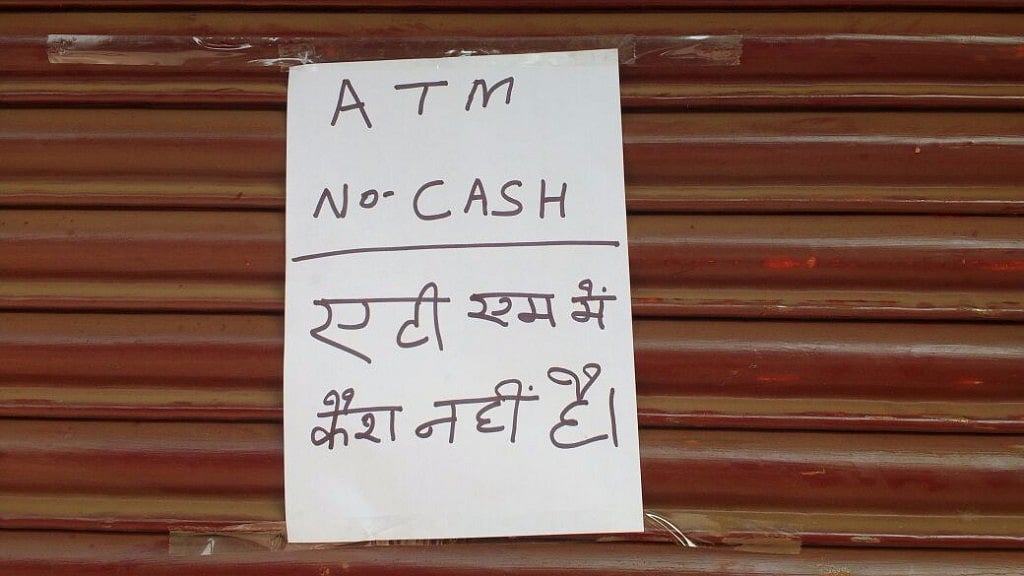 ATM
No- CASH
एटी एम में
कैश नहीं है।